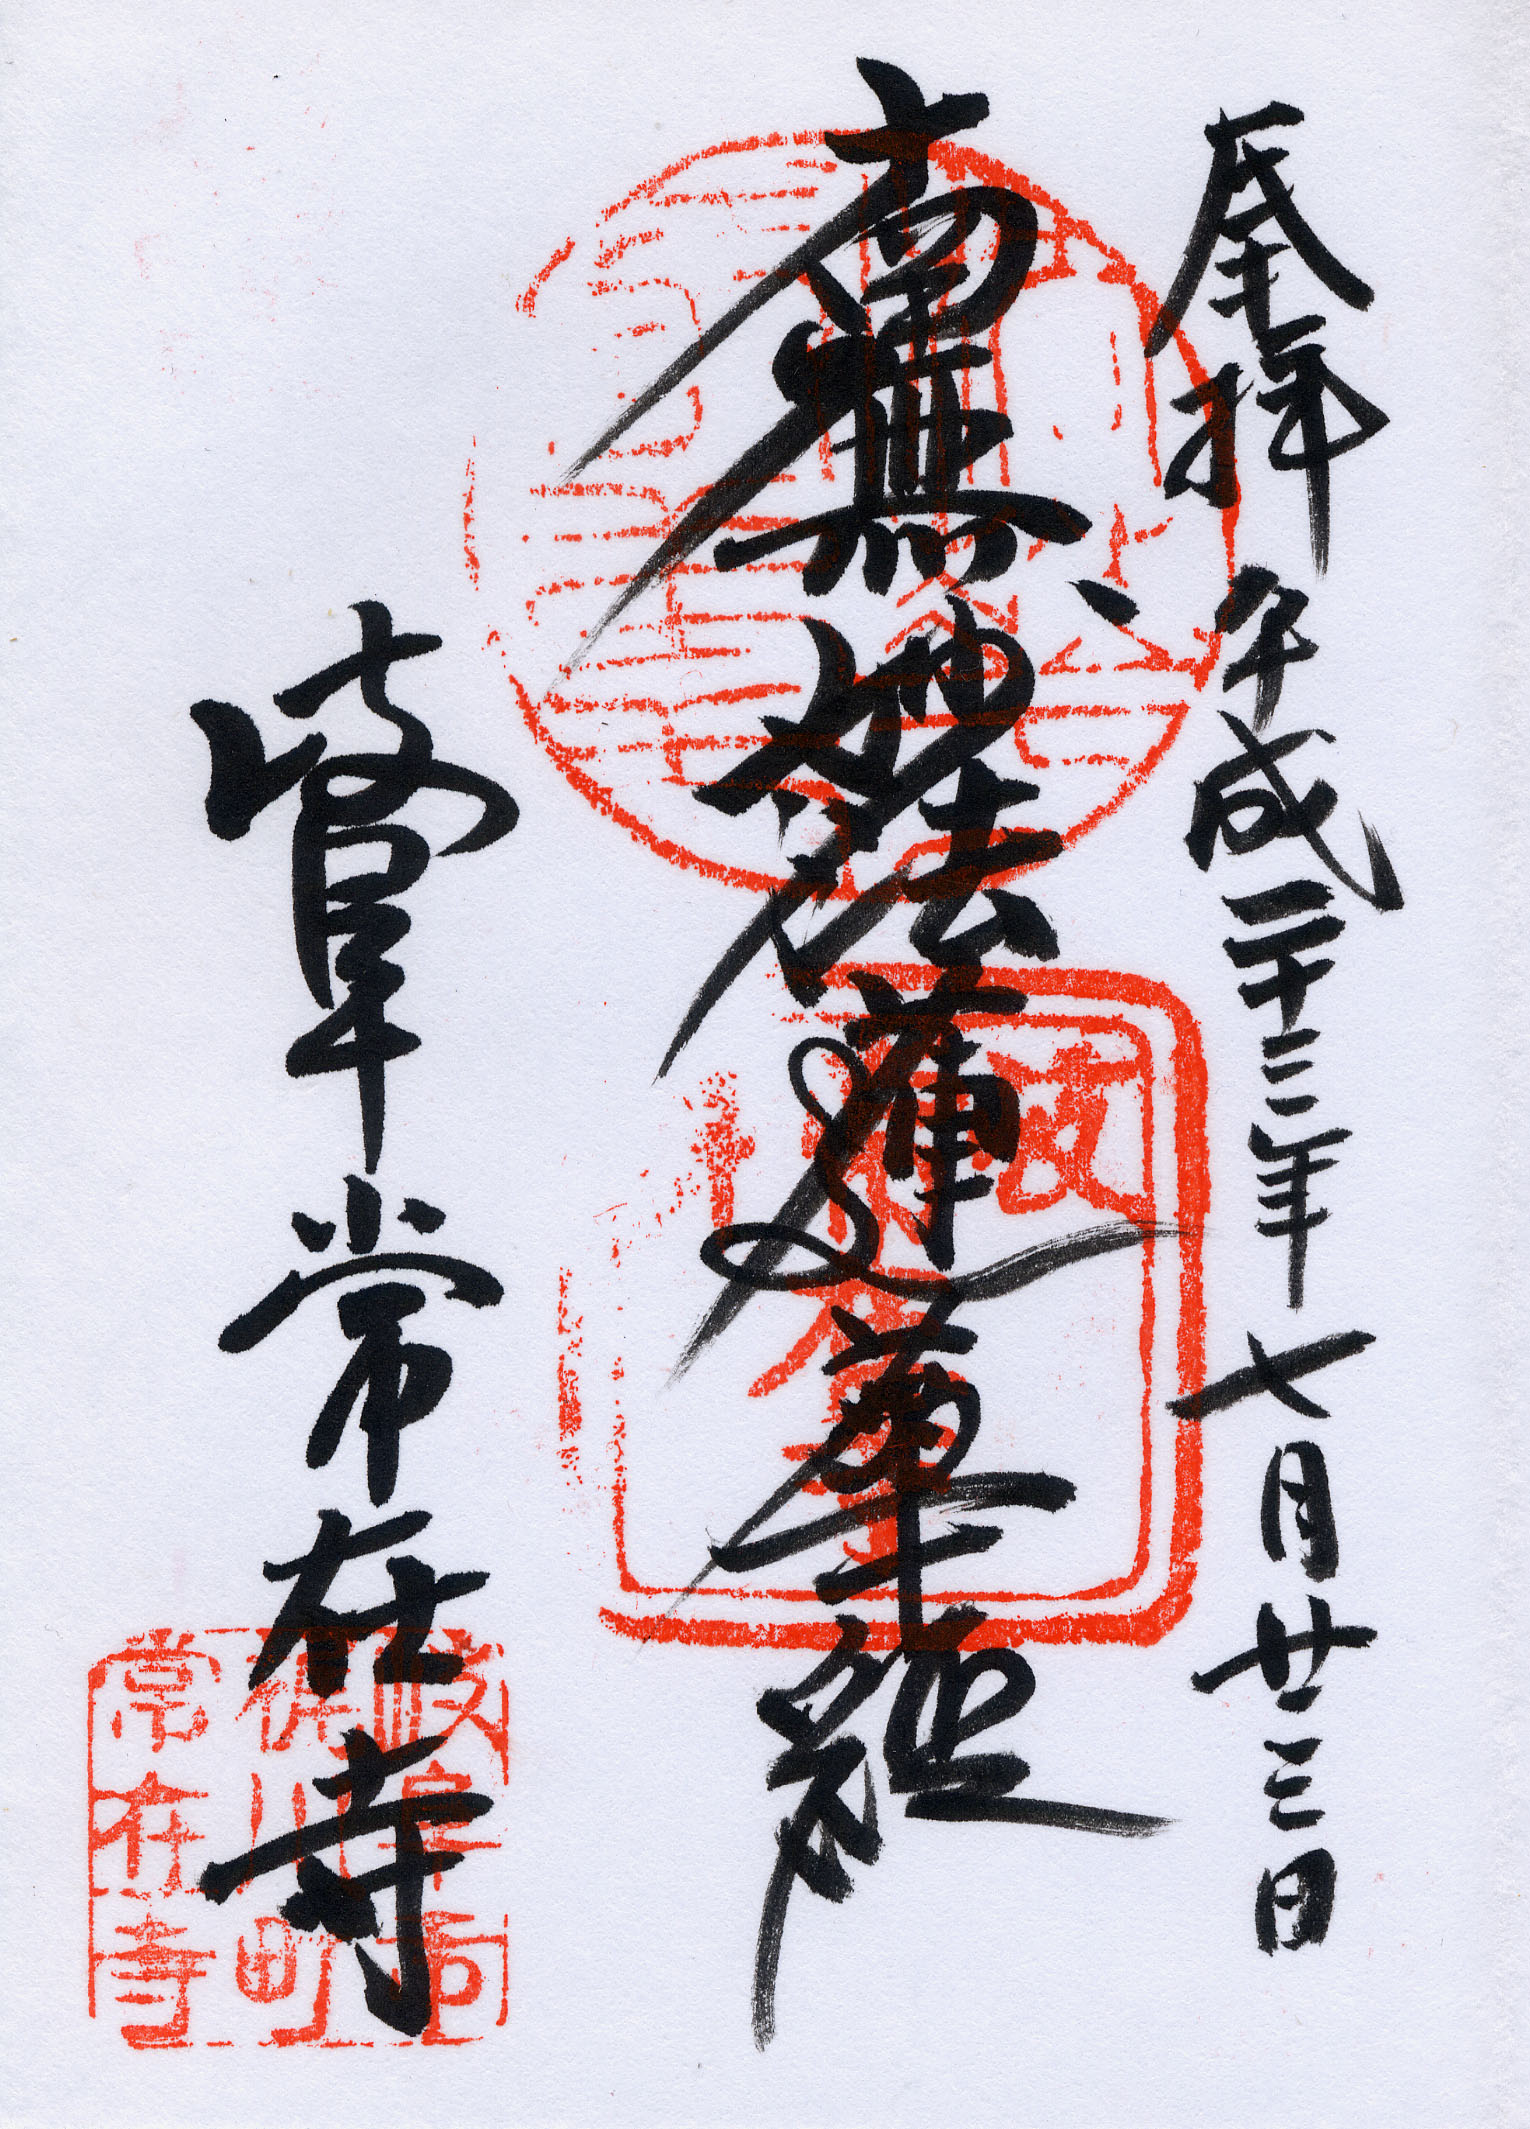 奉拝 平成二十三年七月廿三日
南無妙法蓮華経
岐阜 常在寺
岐阜市
梶川町
常在寺